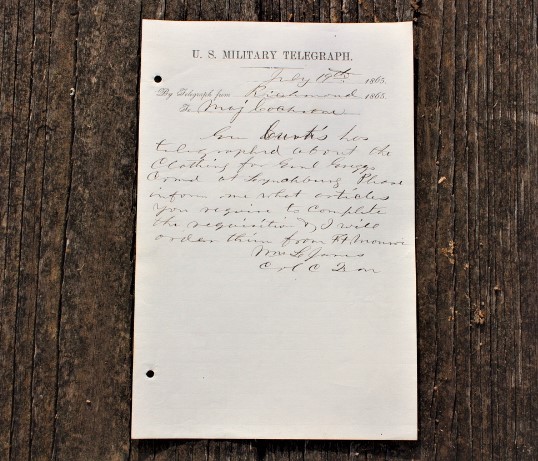 U. S. MILITARY TELEGRAPH.
July 19th 1865.
By Telegraph from Richmond 1865
To Maj
Gen Curtis has
telegraphed about the
Clothing for Genl Greggs
Comd at Lynchburg Please
inform me what articles
you require to complete
the requisition & I will
order them from Ft Monroe
Wm L James
Col C